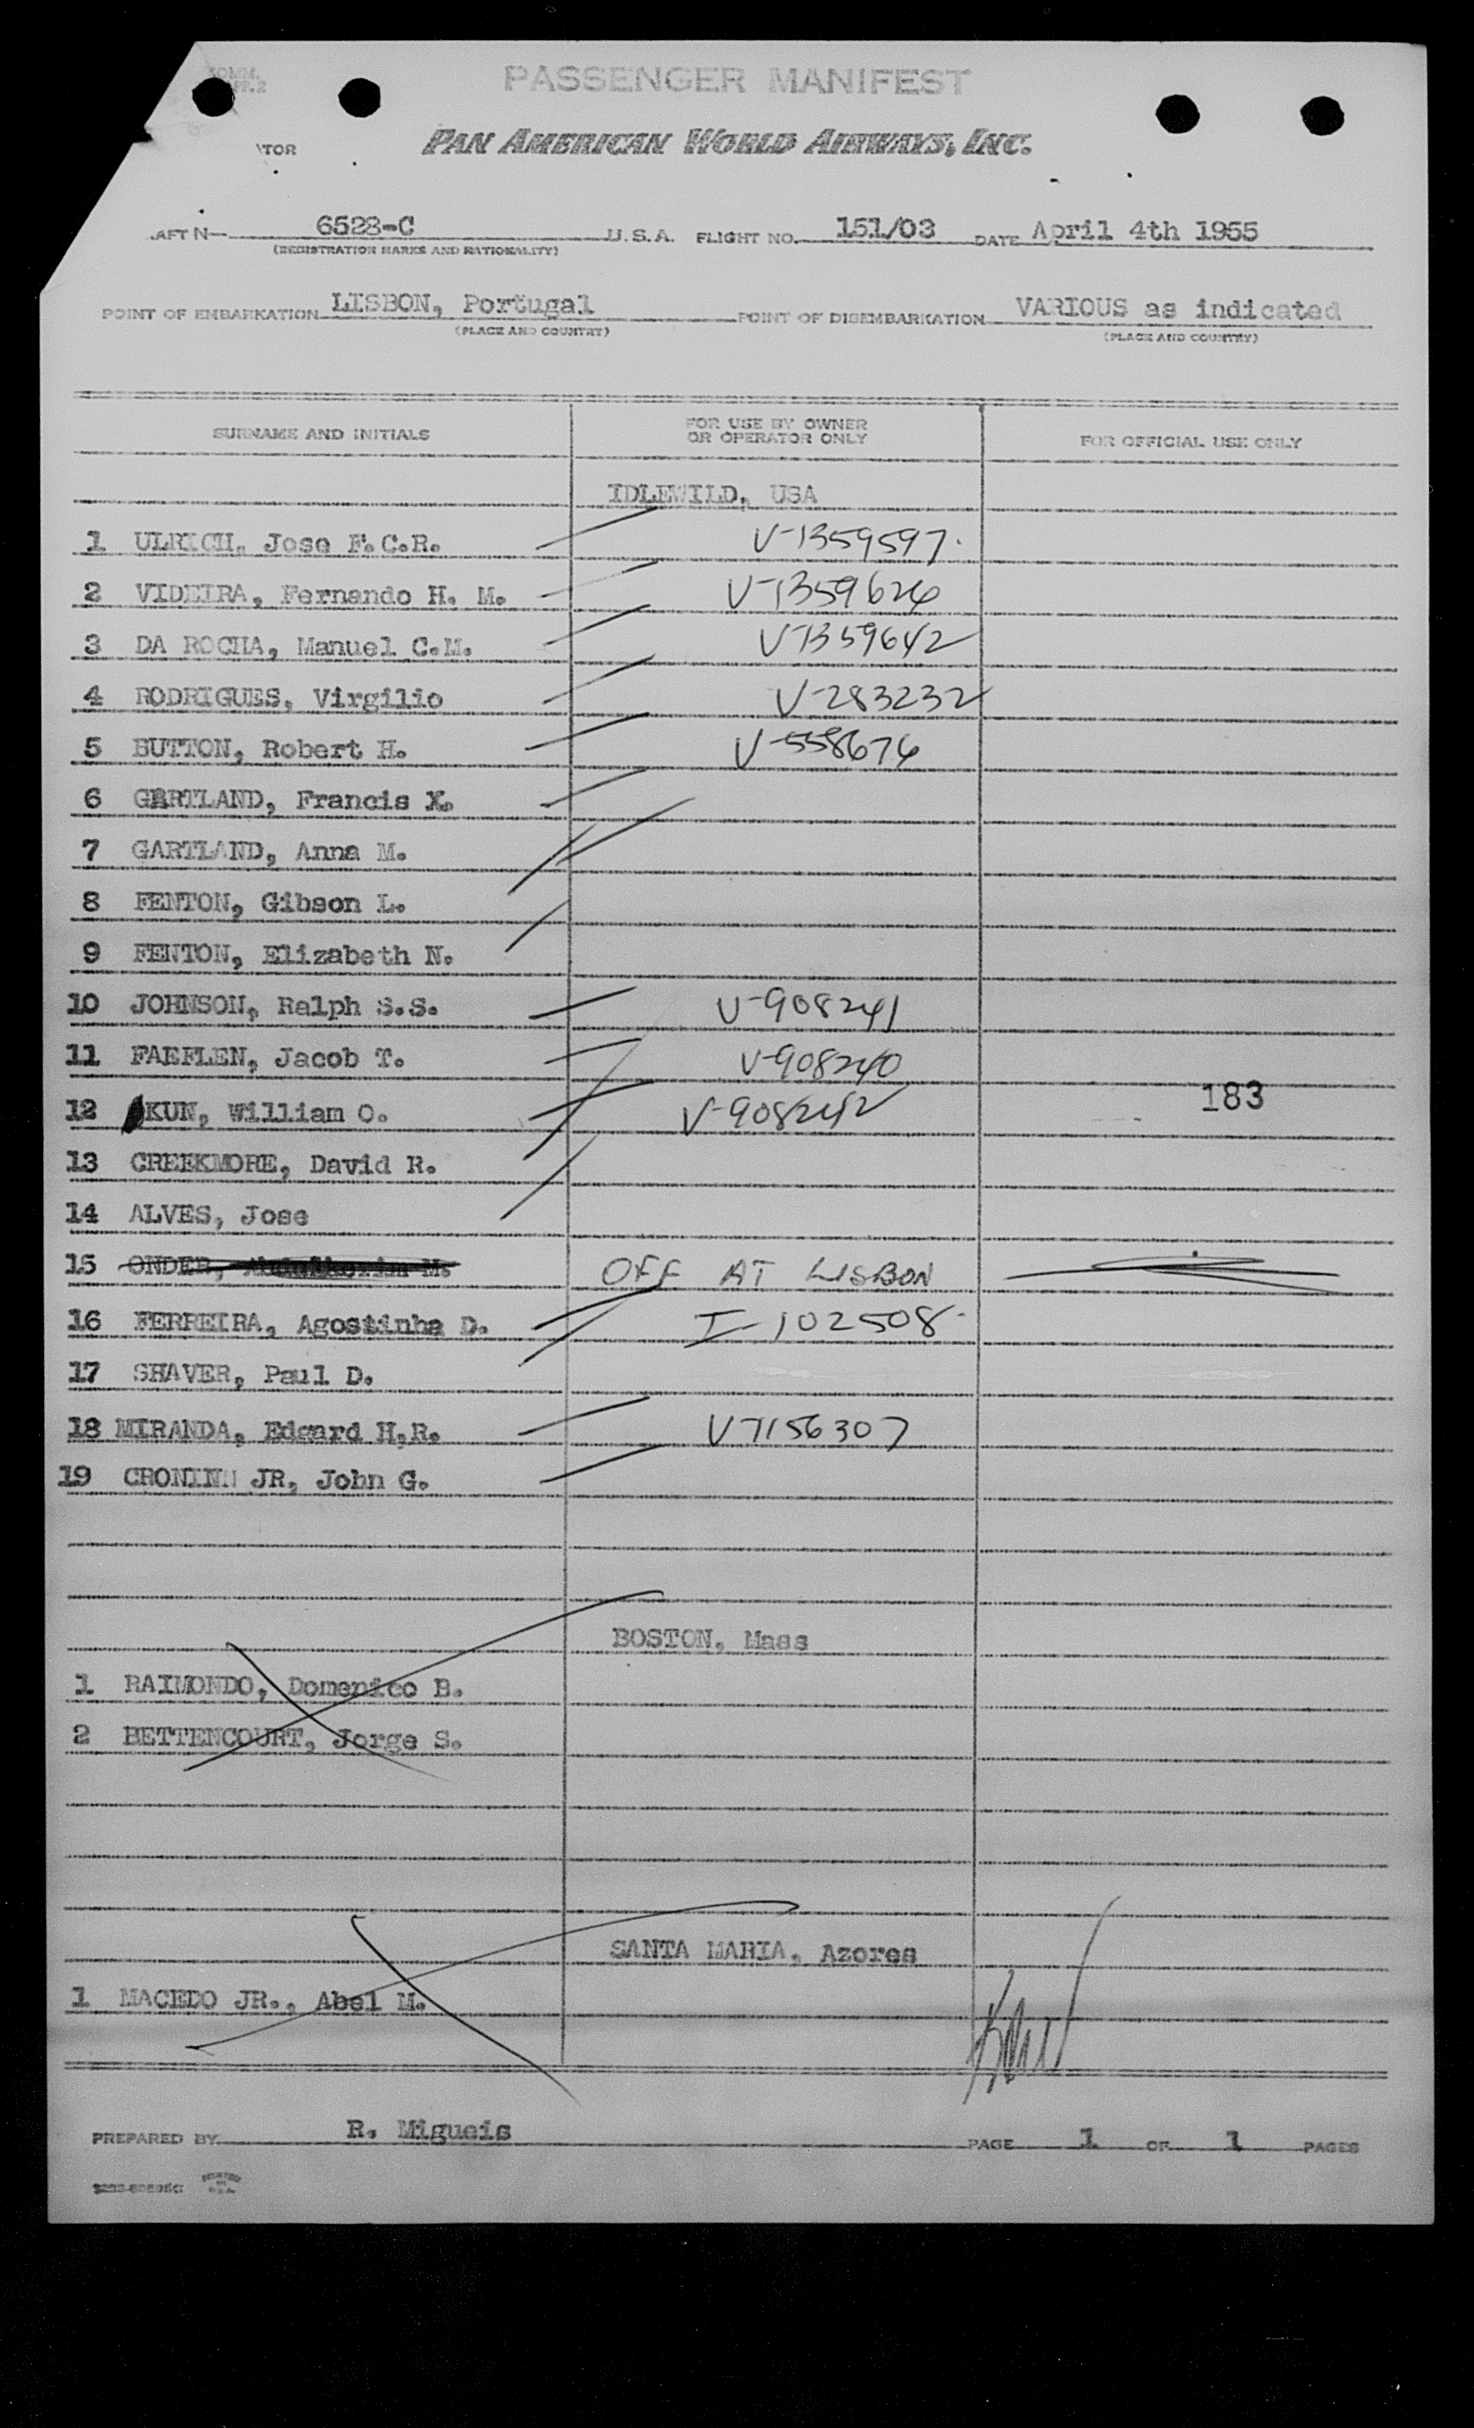 PASSENGER MANIFEST
PAN AMERICAN WORLD AIRWAYS, INC.
AFT N— 6528-C U.S.A. FLIGHT NO. 151/03 DATE April 4th 1955
(REGISTRATION MARKS AND NATIONALITY)
POINT OF EMBARKATION LISBON, Portugal POINT OF DISEMBARKATION VARIOUS as indicated
(PLACE AND COUNTRY) (PLACE AND COUNTRY)
SURNAME AND INITIALS FOR USE BY OWNER OR OPERATOR ONLY FOR OFFICIAL USE ONLY
IDLEWILD, USA
1 ULRICH, Jose F.C.R. V-1359597
2 VIDEIRA, Fernando H. M. V-1359626
3 DA ROCHA, Manuel C.M. V-1359642
4 RODRIGUES, Virgilio V-283232
5 BUTTON, Robert H. V-558676
6 GARTLAND, Francis X.
7 GARTLAND, Anna M.
8 FENTON, Gibson L.
9 FENTON, Elizabeth N.
10 JOHNSON, Ralph S.S. V-908241
11 FAEFLEN, Jacob T. V-908240
12 KUN, William O. V-908242
183
13 CREEKMORE, David R.
14 ALVES, Jose
15 ONDER, M. OFF AT LISBON
16 FERREIRA, Agostinha D. I-102508
17 SHAVER, Paul D.
18 MIRANDA, Edgard H.R. V-1156307
19 CRONINN JR, John G.
BOSTON, Mass
1 RAIMONDO, Domenico B.
2 BETTENCOURT, Jorge S.
SANTA MARIA, Azores
1 MACEDO JR., Abel M.
PREPARED BY R. Migueis PAGE 1 OF 1 PAGES